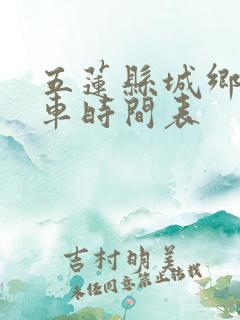 五蓮縣城鄉
車時間表
吉村明美
未經同意禁止轉載